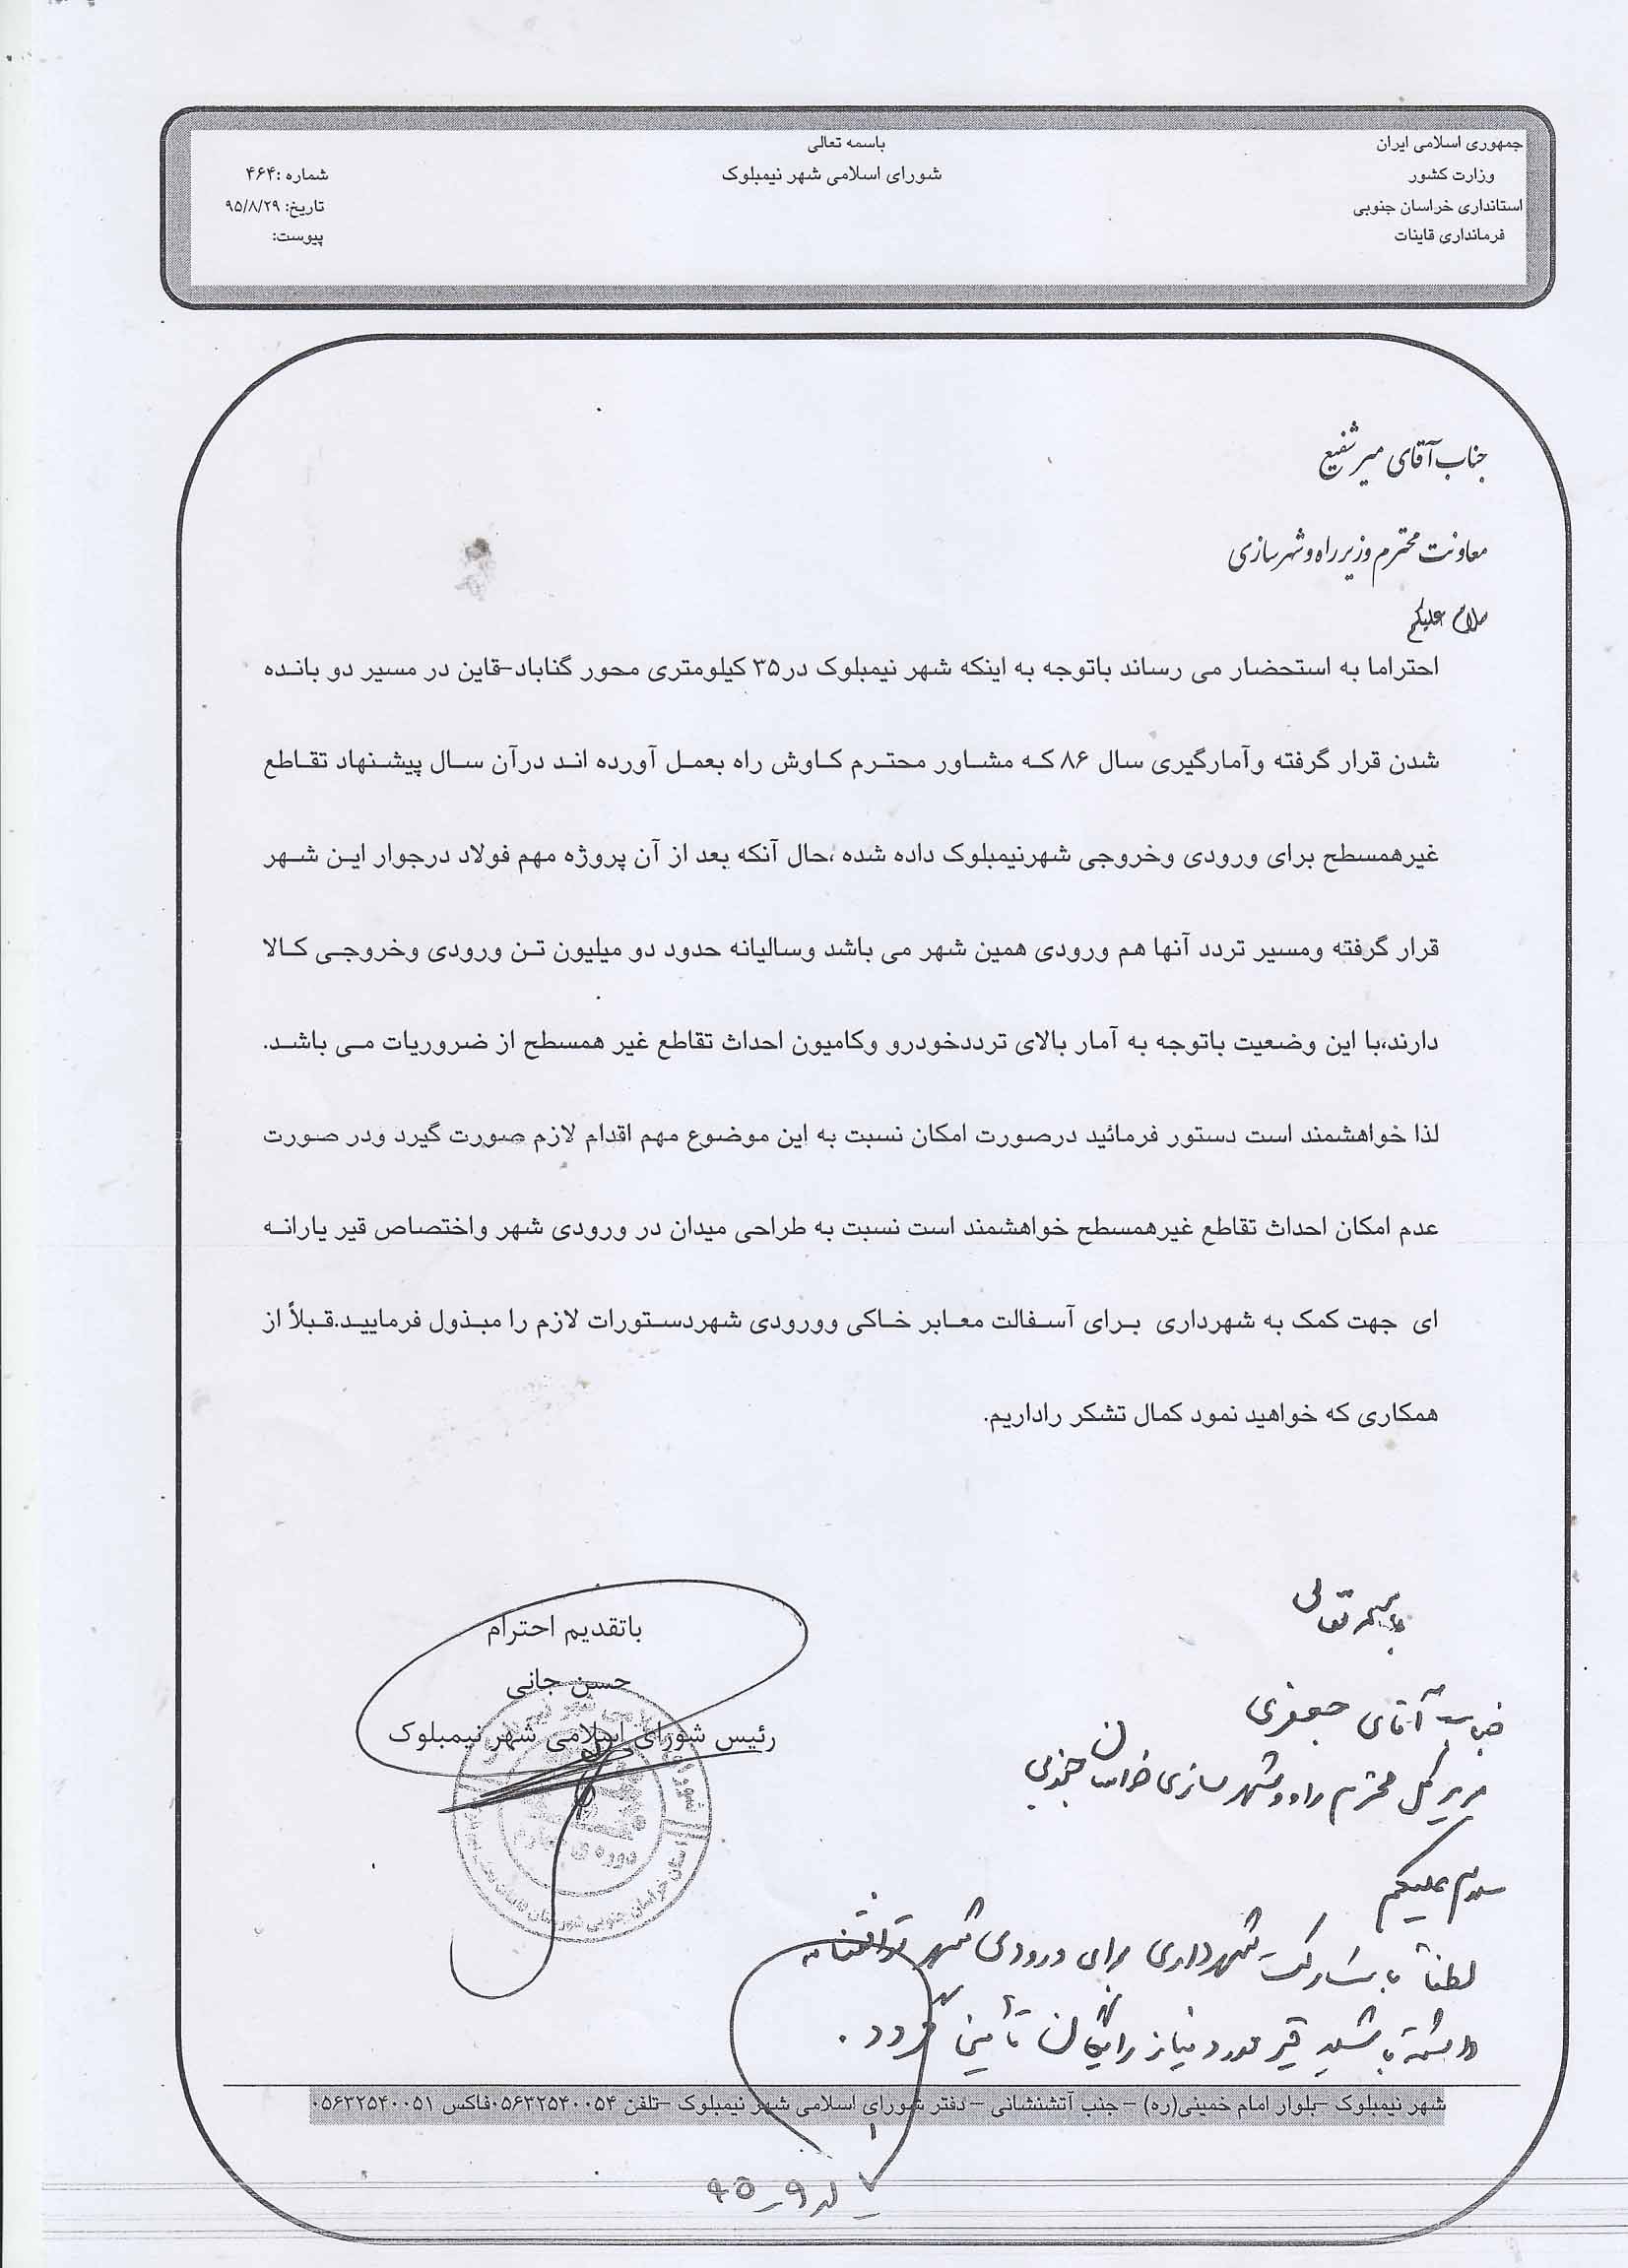 جمهوری اسلامی ایران
وزارت کشور
استانداری خراسان جنوبی
فرمانداری قاینات
باسمه تعالی
شورای اسلامی شهر نیمبلوک
شماره :۴۶۴
تاریخ: ۹۵/۸/۲۹
پیوست:
جناب آقای میرشفیع
معاونت محترم وزیر راه و شهرسازی
سلام علیکم
احتراما به استحضار می رساند باتوجه به اینکه شهر نیمبلوک در۳۵ کیلومتری محور گناباد-قاین در مسیر دو بانده
شدن قرار گرفته وآمارگیری سال ۸۶ که مشاور محترم کاوش راه بعمل آورده اند درآن سال پیشنهاد تقاطع
غیرهمسطح برای ورودی وخروجی شهرنیمبلوک داده شده ،حال آنکه بعد از آن پروژه مهم فولاد درجوار این شهر
قرار گرفته ومسیر تردد آنها هم ورودی همین شهر می باشد وسالیانه حدود دو میلیون تن ورودی وخروجی کالا
دارند،با این وضعیت باتوجه به آمار بالای ترددخودرو وکامیون احداث تقاطع غیر همسطح از ضروریات می باشد.
لذا خواهشمند است دستور فرمائید درصورت امکان نسبت به این موضوع مهم اقدام لازم صورت گیرد ودر صورت
عدم امکان احداث تقاطع غیرهمسطح خواهشمند است نسبت به طراحی میدان در ورودی شهر واختصاص قیر یارانه
ای جهت کمک به شهرداری برای آسفالت معابر خاکی وورودی شهردستورات لازم را مبذول فرمایید.قبلاً از
همکاری که خواهید نمود کمال تشکر راداریم.
باتقدیم احترام
حسن جانی
رئیس شورای اسلامی شهر نیمبلوک
دوره ی چهارم
باسمه تعالی
جناب آقای جعفری
مدیر کل محترم راه و شهرسازی خراسان جنوبی
سلام علیکم
لطفاً با مشارکت شهرداری برای ورودی شهر توافقنامه
داشته باشید قیر مورد نیاز رایگان تأمین گردد.
شهر نیمبلوک –بلوار امام خمینی(ره) – جنب آتشنشانی – دفتر شورای اسلامی شهر نیمبلوک –تلفن ۰۵۶۳۲۵۴۰۰۵۴فاکس ۰۵۶۳۲۵۴۰۰۵۱
۱